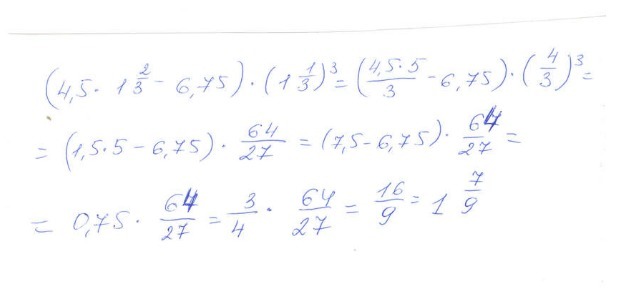 (4,5 · 1 2/3 - 6,75) · (1 1/3)³ = (4,5·5/3 - 6,75) · (4/3)³ =
= (1,5·5 - 6,75) · 64/27 = (7,5 - 6,75) · 64/27 =
= 0,75 · 64/27 = 3/4 · 64/27 = 16/9 = 1 7/9